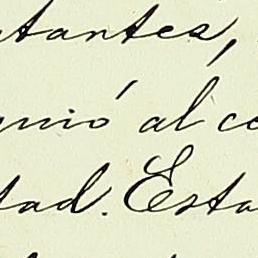 tantes,
unió al co
tad. Esta